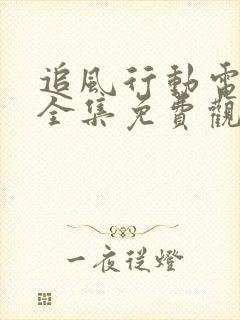 追風行動電
全集免費觀
一夜從燈